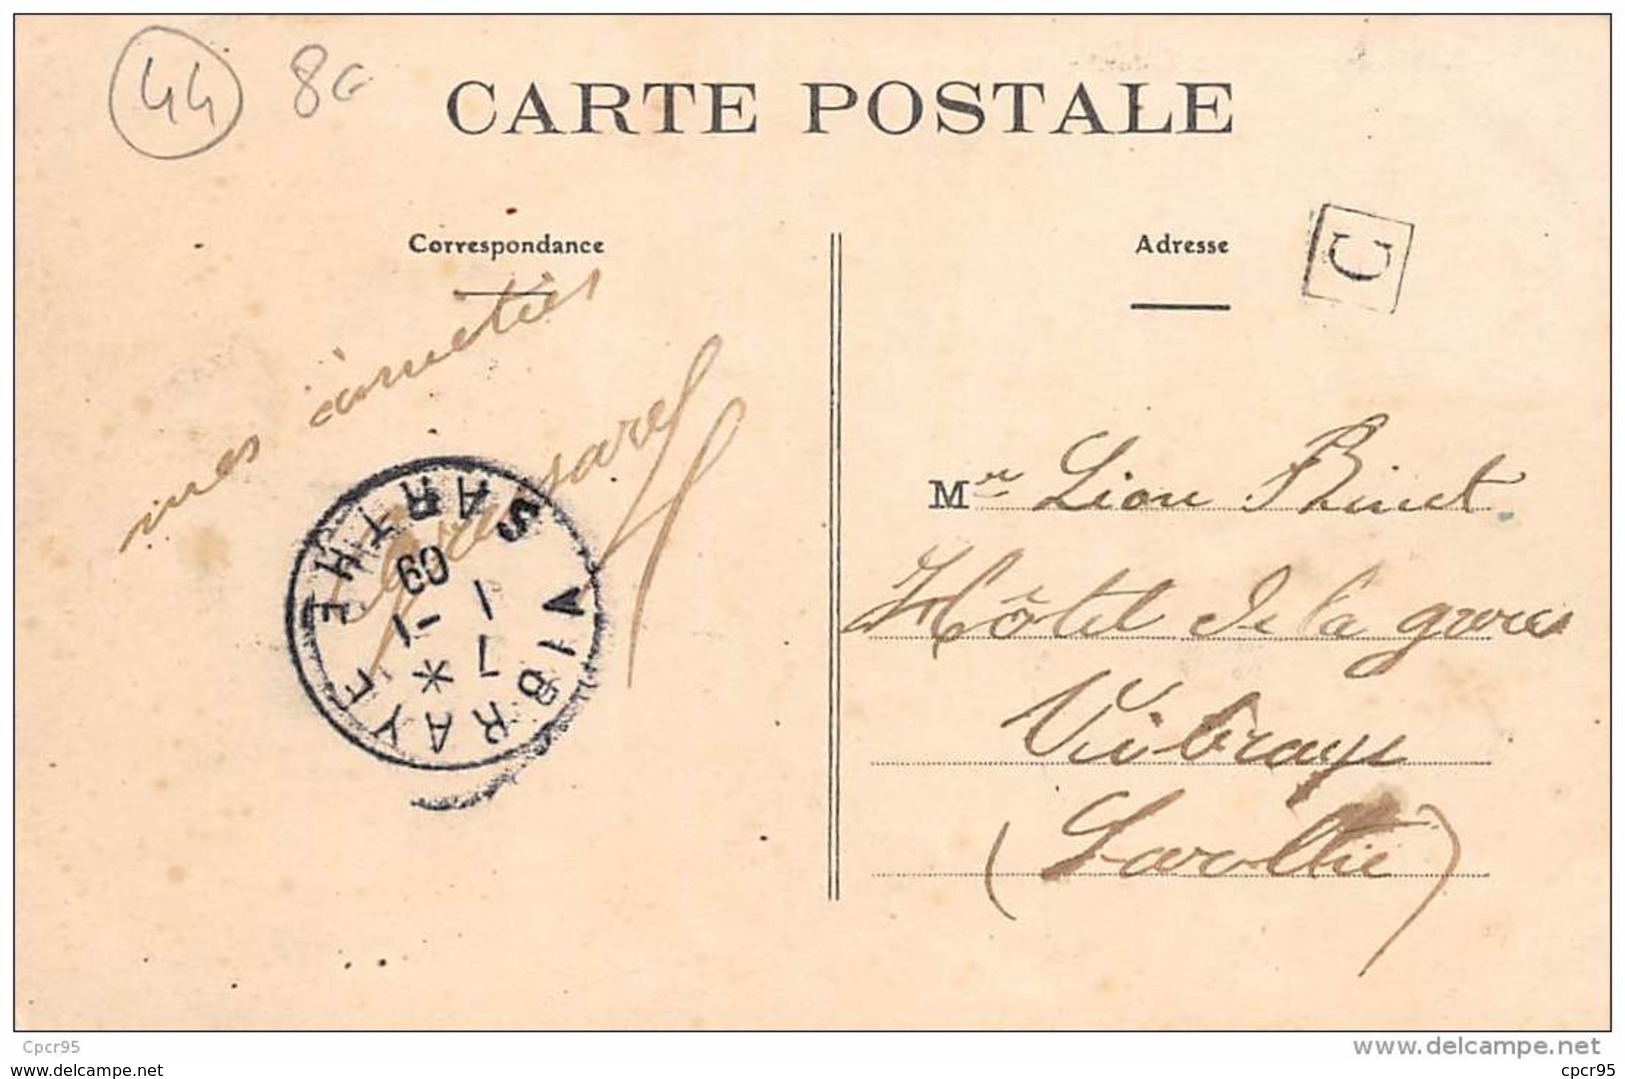 44 8€
CARTE POSTALE
Correspondance
Adresse
C
mes amitiés
Mr Léon Binet
Hôtel de la gare
Vibraye
(Sarthe)
VIBRAYE
SARTHE
7 1
-1
09
Cpcr95
www.delcampe.net
cpcr95